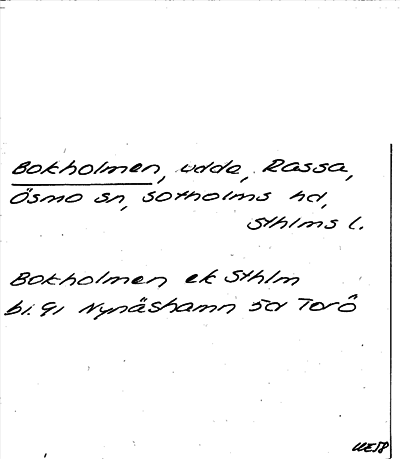 Bokholmen, udde, Rassa,
Ösmo sn, Sotholms hd,
Sthlms l.
Bokholmen ek Sthlm
bl. 91 Nynäshamn 5d Torö